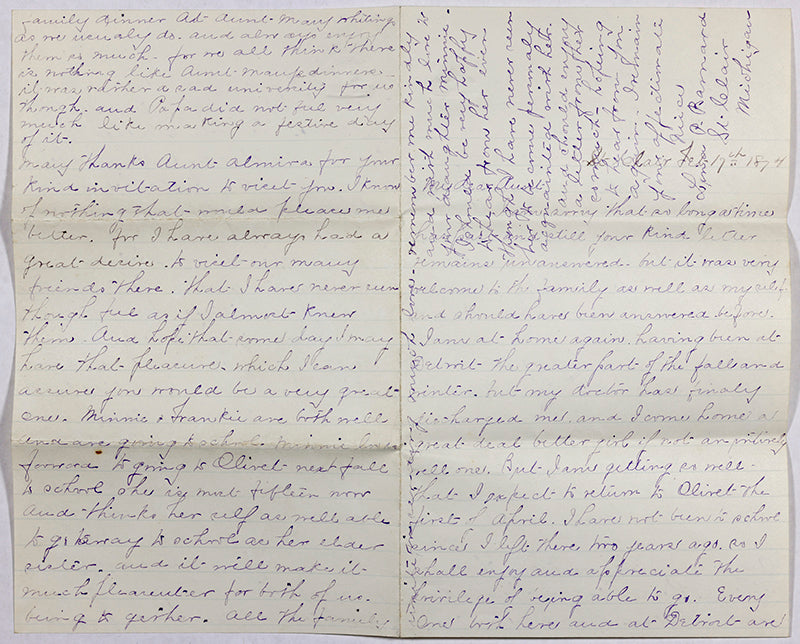 family dinner At Aunt Mary Whitings
as we usualy do. and always enjoy
them so much. for we all think there
is nothing like Aunt Marys dinners.
it was rather a sad for us
though. and Papa did not feel very
much like making a festive day
of it.
Many thanks Aunt Almira for your
kind invitation to visit you. I know
of nothing that would please me
better. for I have always had a
great desire. to visit our many
friends there. that I have never seen
though feel as if I almost knew
them. And hope that some day I may
have that pleasure. which I can
assure you would be a very great
one. Minnie & Frankie are both well
and are going to school. Minnie looks
forward to going to Olivet next fall
to school she is most fifteen now
and thinks her self as well able
to go away to school as her elder
sister. and it will make it
much pleasenter for both of us.
being to gether. All the family
unite in sending much love. remember me kindly
and with much love to
the daughter Minnie.
I should be very happy
to hear from her even
though I have never seen
her to become personaly
acquainted with her.
and should enjoy
a letter from her
so much. hoping
to hear from you
again. I remain
your affectionate
Niece
P Barnard
St. Clair
Michigan
St Clair Feb 17th 1874
Dear Aunt
sorry that so long a time
still your kind letter
remains unanswered. but it was very
welcome to the family as well as my self.
and should have been answered before.
I am at home again. having been at
Detroit the greater part of the fall and
winter. but my doctor has finaly
discharged me. and I come home a
great deal better girl if not an intirely
well one. But I am getting so well
that I expect to return to Olivet the
first of April. I have not been to school
since I left there two years ago. so I
shall enjoy and appreciate the
privilege of being able to go. Every
one both here and at Detroit are